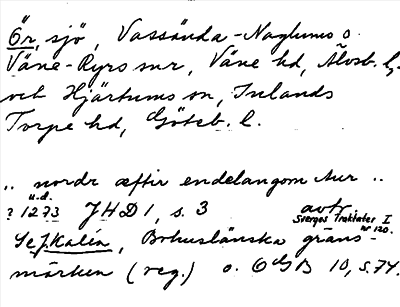 Ör, sjö, Vassända-Naglums o.
Väne-Ryrs snr, Väne hd, Älvsb. l,
och Hjärtums sn, Inlands
Torpe hd, Göteb. l.
.. nordr æftir endelangom Aur ..
u.d.
? 1273 JHD 1, s. 3 avtr.
Sverges Traktater I
nr 120.
Se J. Kalén, Bohuslänska gräns-
märken (reg.) o. OGB 10, s. 74.